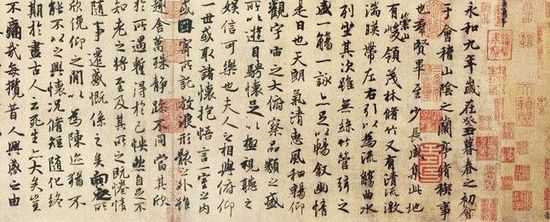 永和九年歲在癸丑暮春之初會
于會稽山陰之蘭亭脩稧事
也群賢畢至少長咸集此地
有崇山峻領茂林脩竹又有清流激
湍暎帶左右引以為流觴曲水
列坐其次雖無絲竹管弦之
盛一觴一詠亦足以暢敘幽情
是日也天朗氣清惠風和暢仰
觀宇宙之大俯察品類之盛
所以遊目騁懷足以極視聽之
娛信可樂也夫人之相與俯仰
一世或取諸懷抱悟言一室之內
或因寄所託放浪形骸之外雖
趣舍萬殊靜躁不同當其欣
於所遇暫得於己怏然自足不
知老之將至及其所之既惓情
隨事遷感慨係之矣向之所
欣俛仰之閒以為陳迹猶不
能不以之興懷況脩短隨化終
期於盡古人云死生亦大矣豈
不痛哉每攬昔人興感之由